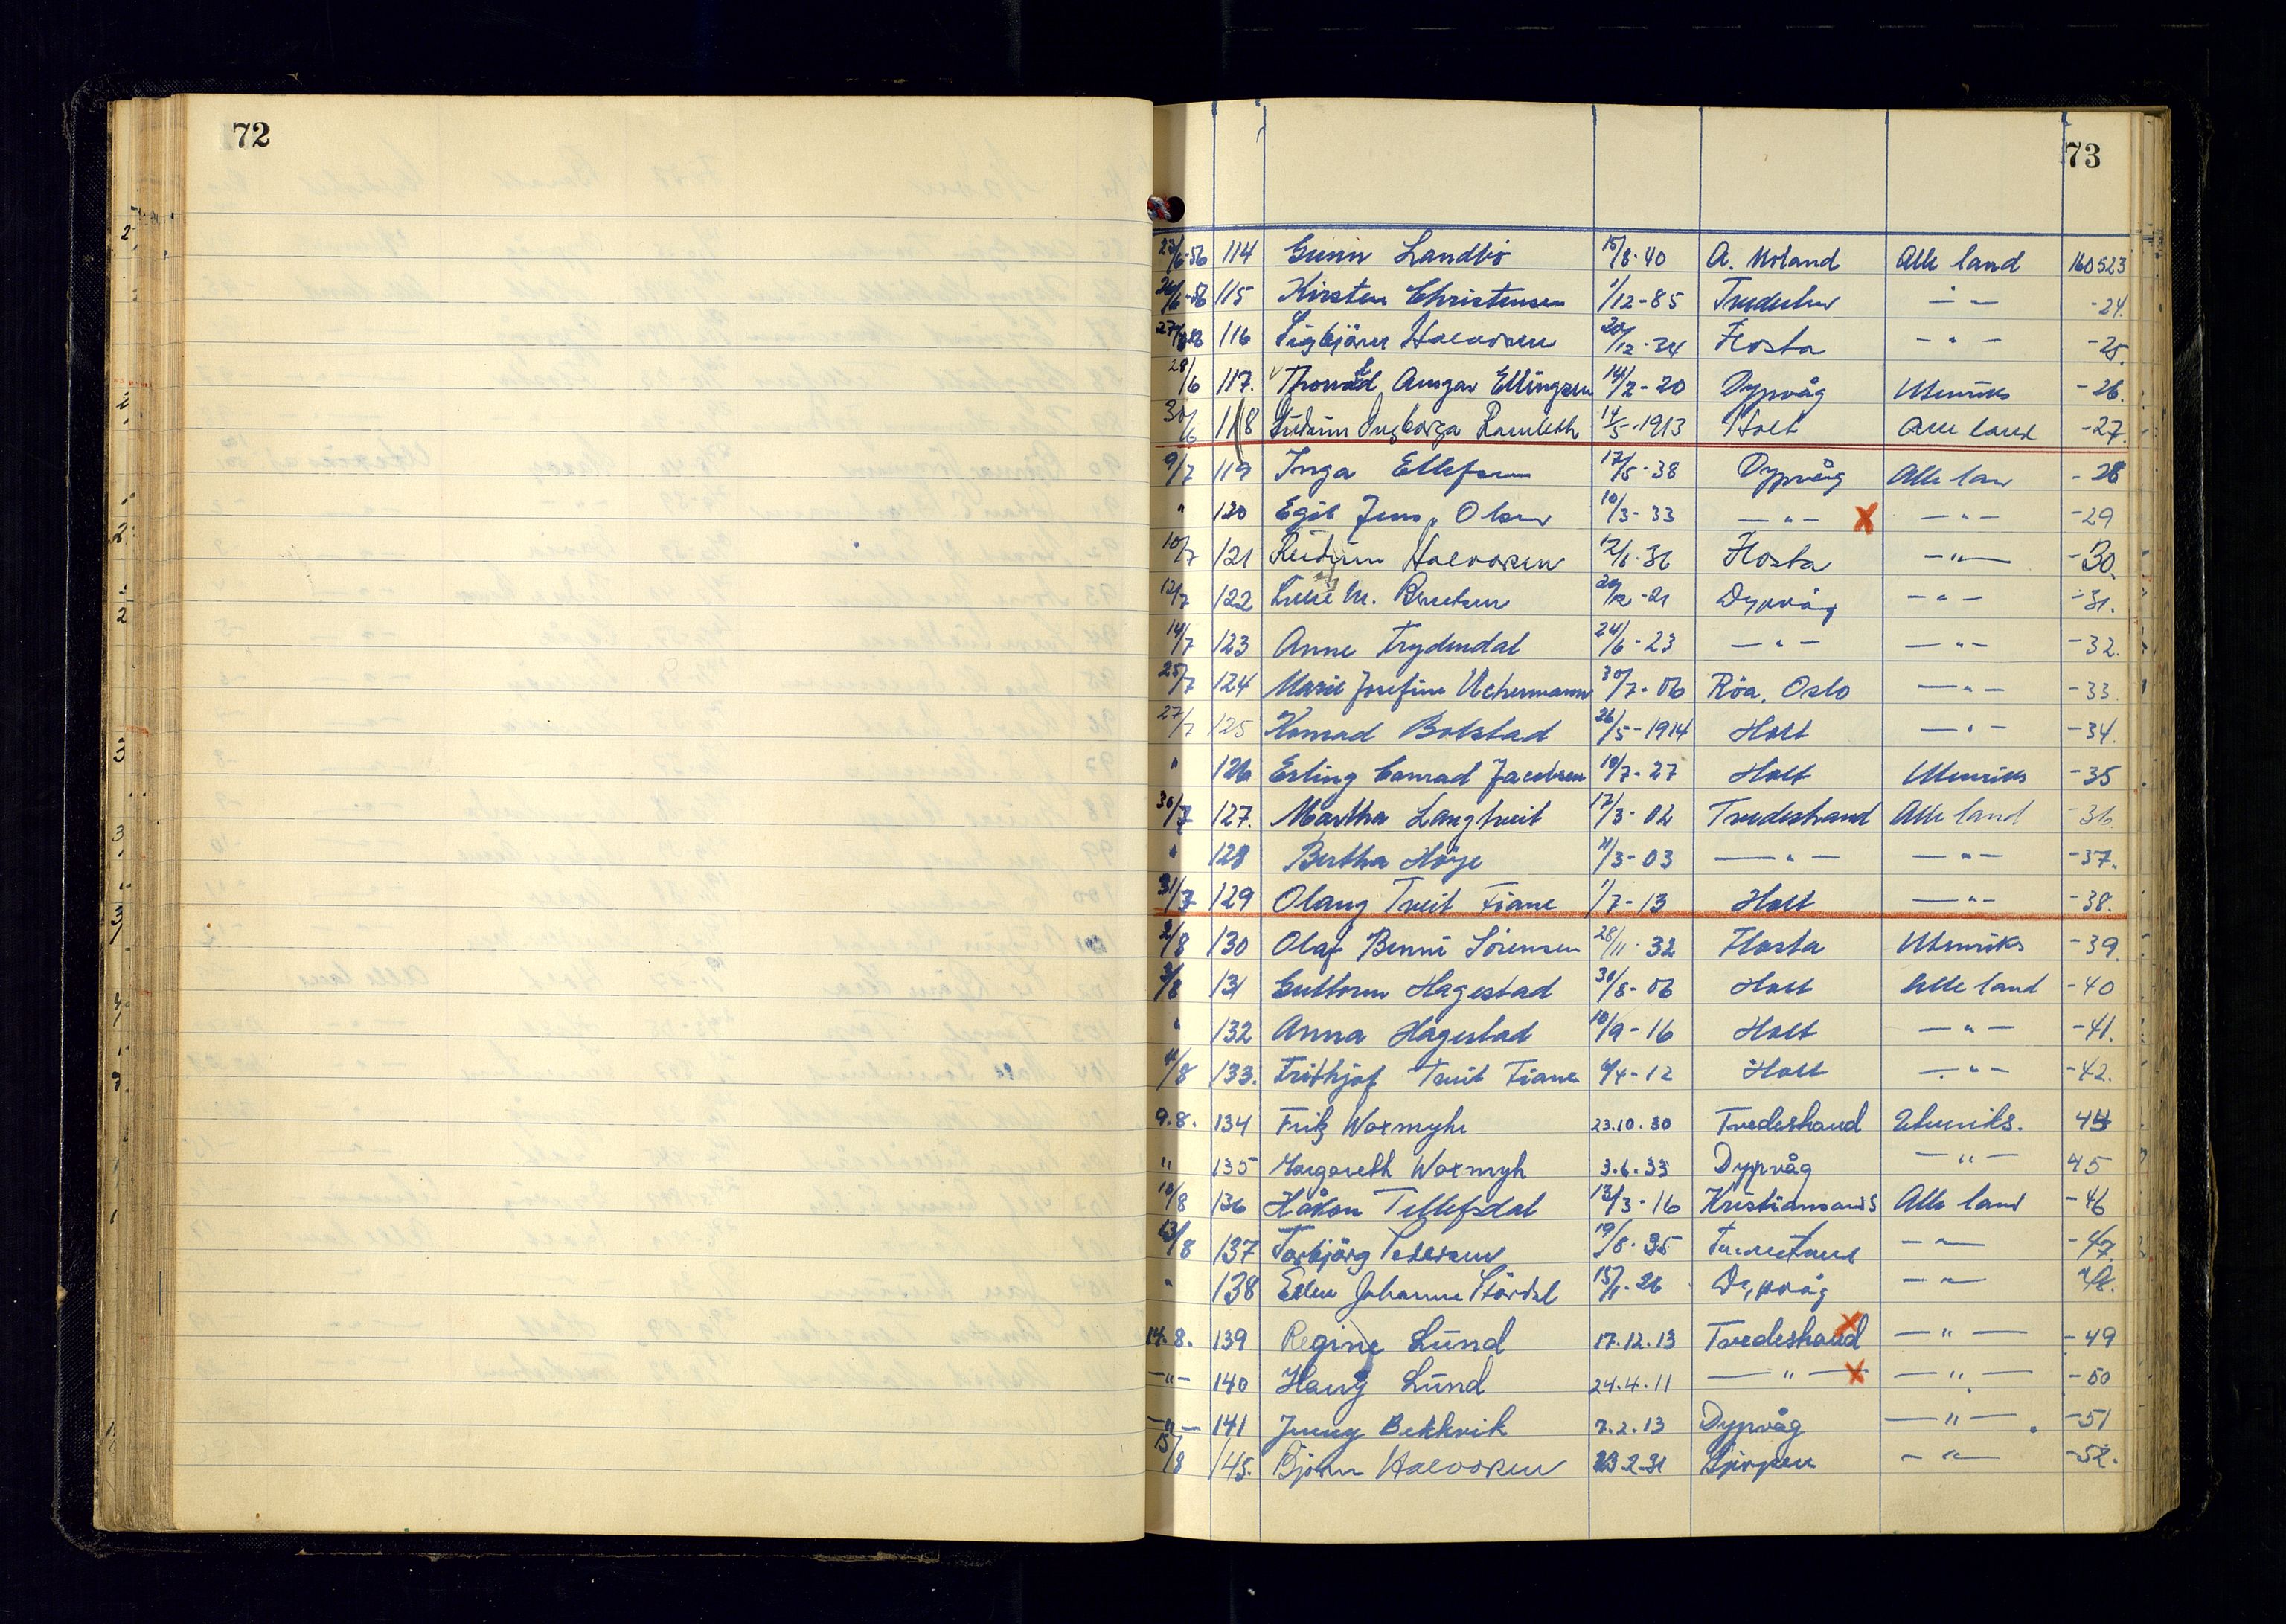 72
73
23/6-56 114 Gunn Landbö 15/8-40 A. Moland Alle land 160523
26/6-56 115 Kirsten Christensen 1/12-85 - " - -24.
116 Sigbjörn Halvorsen 20/12-34 Flosta - " - -25.
28/6 117. Ansgar Ellingsen 14/2-20 Dypvåg Utenriks -26.
30/6 118 Ingborga 14/5-1913 Holt Alle land -27.
9/7 119 Inga Ellefsen 17/5-38 Dypvåg Alle lan -28
" 120 Egil Jens Olsen 10/3-33 - " - X - " - -29
10/7 121 Reidunn Halvorsen Flosta - " - -30.
12/7 122 M. Berntsen Dypvåg - " - -31.
14/7 123 Anne Trydendal 24/6-23 - " - - " - -32.
25/7 124 Marie Josefine Uchermann 30/7-06 Röa, Oslo - " - -33.
27/7 125 Konrad Bolstad 26/5-1914 Holt - " - -34.
" 126 Erling Conrad Jacobsen 18/7-27 Holt Utenriks -35
30/7 127. Martha Langtveit 17/3-02 Tvedestrand Alle land -36.
" 128 Bertha Höye 11/3-03 - " - - " - -37.
31/7 129 Olaug Tveit Fiane 1/7-13 Holt - " - -38.
2/8 130 Olaf Benni Sörensen 28/11-32 Flosta Utenriks -39.
3/8 131 Guttorm Hagestad 30/8-06 Holt Alle land -40
" 132 Anna Hagestad 10/9-16 Holt - " - -41.
4/8 133. Frithjof Tveit Fiane Holt - " - -42.
9.8. 134 23.10.30 Tvedestrand Utenriks. 44
" 135 Margareth 3.6.33 Dypvåg - " - 45
10/8 136 Håkon Tellefsdal 13/3-16 Kristiansand S Alle land -46
13/8 137 Torbjörg 19/8-35 - " - -47.
" 138 Ellen Johanne Dypvåg - " - -48.
14.8. 139 Regine Lund 17.12.13 Tvedestrand X - " - -49
- " - 140 Lund 24.4.11 - " - X - " - -50
- " - 141 Jenny Bekkvik 7.2.13 Dypvåg - " - -51
15/8 145. Bjørn Halvorsen Gjerpen - " - -52.